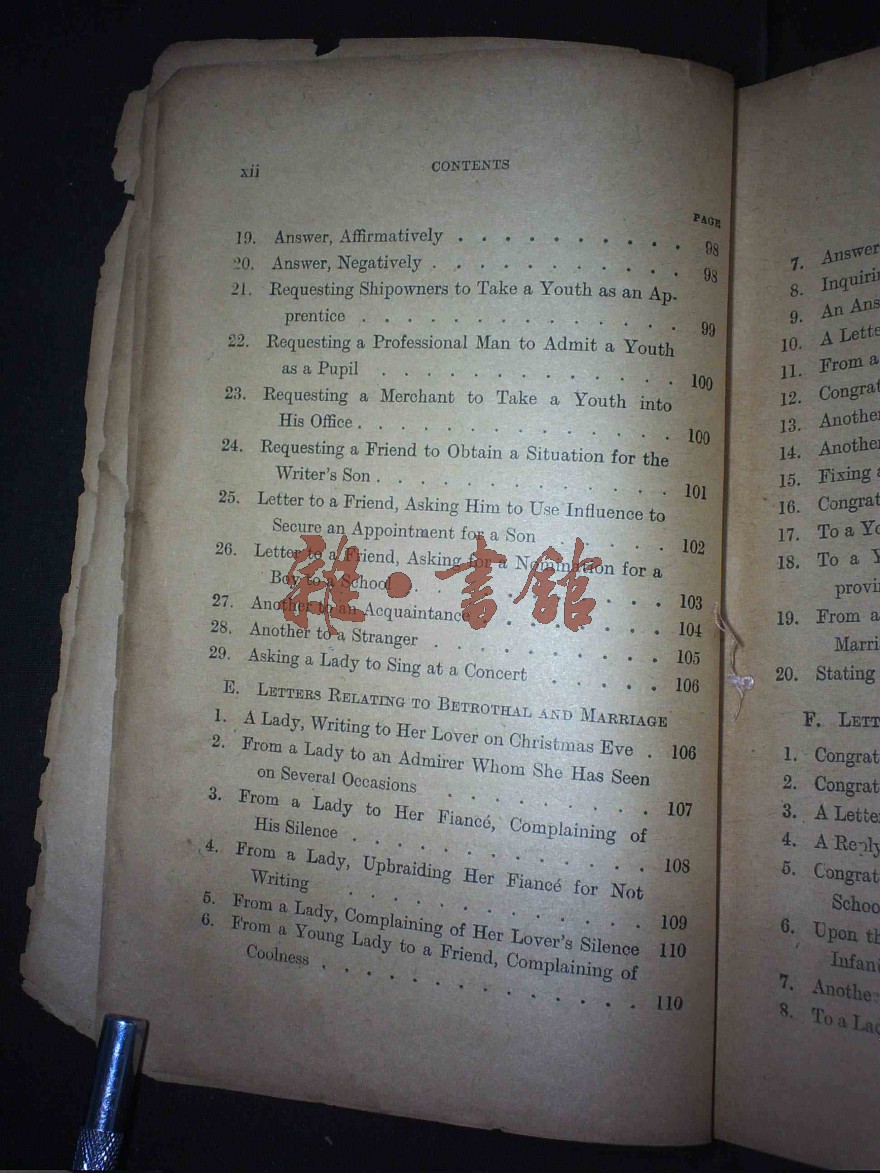 xii
CONTENTS
PAGE
19. Answer, Affirmatively . . . . . . . . . . 98
20. Answer, Negatively . . . . . . . . . . . 98
21. Requesting Shipowners to Take a Youth as an Ap-
prentice . . . . . . . . . . . . 99
22. Requesting a Professional Man to Admit a Youth
as a Pupil . . . . . . . . . . . 100
23. Requesting a Merchant to Take a Youth into
His Office . . . . . . . . . . . 100
24. Requesting a Friend to Obtain a Situation for the
Writer's Son . . . . . . . . . . . 101
25. Letter to a Friend, Asking Him to Use Influence to
Secure an Appointment for a Son . . . . . 102
26. Letter to a Friend, Asking for a Nomination for a
Boy to a School . . . . . . . . . . 103
27. Another to an Acquaintance . . . . . . . 104
28. Another to a Stranger . . . . . . . . . 105
29. Asking a Lady to Sing at a Concert . . . . . 106
E. LETTERS RELATING TO BETROTHAL AND MARRIAGE
1. A Lady, Writing to Her Lover on Christmas Eve . 106
2. From a Lady to an Admirer Whom She Has Seen
on Several Occasions . . . . . . . . 107
3. From a Lady to Her Fiancé, Complaining of
His Silence . . . . . . . . . . . 108
4. From a Lady, Upbraiding Her Fiancé for Not
Writing . . . . . . . . . . . 109
5. From a Lady, Complaining of Her Lover's Silence 110
6. From a Young Lady to a Friend, Complaining of
Coolness . . . . . . . . . . . 110
雜·書館
7. Answer
8.
9. An
10. A
11. From a
12.
13.
14. Another
15. Fixing
16.
17. To a
18. To a
19. From a
20. Stating
F.
1.
2.
3. A
4. A Reply
5.
6. Upon
7.
8. To a